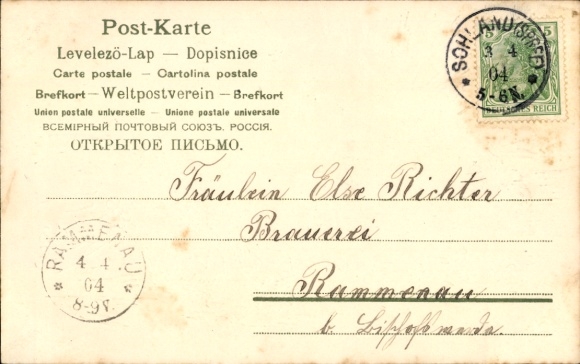 Post-Karte
Levelezö-Lap — Dopisnice
Carte postale — Cartolina postale
Brefkort — Weltpostverein — Brefkort
Union postale universelle — Unione postale universale
ВСЕМІРНЫЙ ПОЧТОВЫЙ СОЮЗЪ. РОССІЯ.
ОТКРЫТОЕ ПИСЬМО.
SOHLAND (SPREE)
3 4
04
5-6N.
5
DEUTSCHES REICH
Fräulein Else Richter
Brauerei
Rammenau
b. Bischofswerda.
RAMMENAU
4 4
04
8-9V.